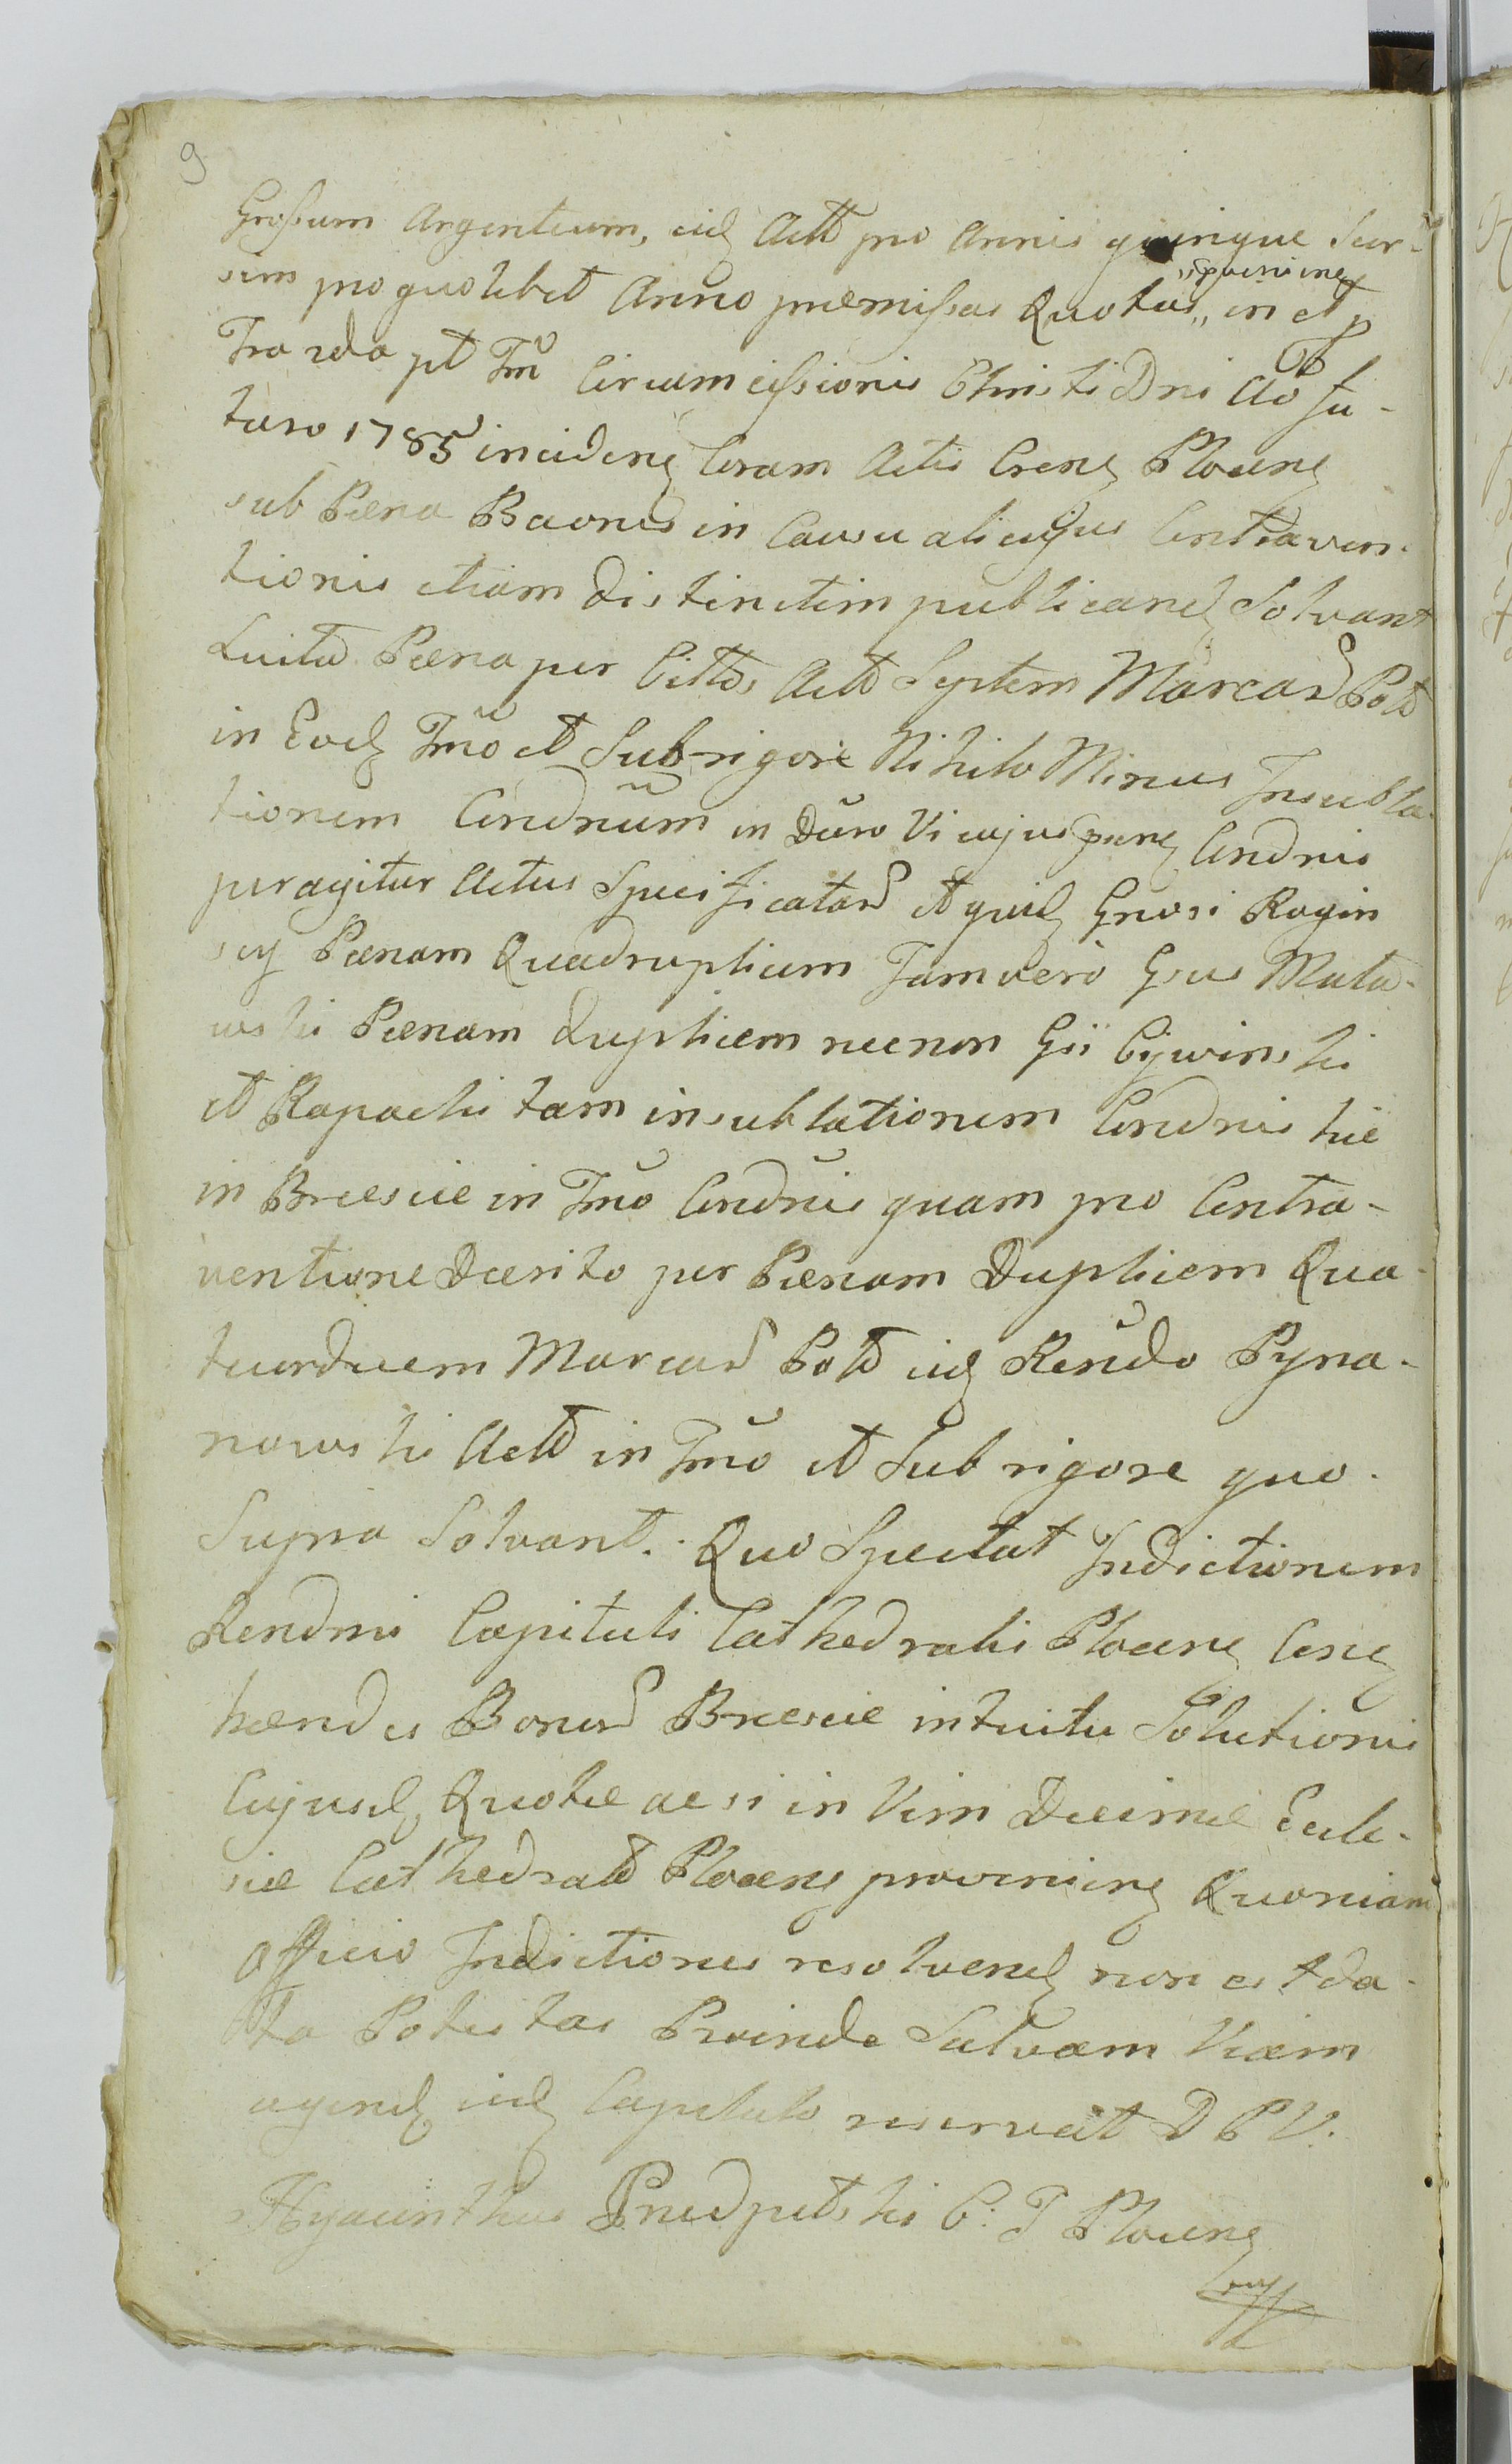 9
Grossum Argenteum, eid Actt pro Annis quinque Seor-
sim pro quolibet Anno præmissas Quotas,, in et p
,,provenien
Fra 2da pt Fm Circumcissionis Christi Dni Ao fu-
turo 1785 inciden Coram Actis Cren Plocen
sub Pæna Baonis in Casu alicujus Contraven-
tionis etiam distinctim publicand Solvant
Luita Pæna per Cittos Actt Septem Marcar Pol
in Eod Tmo et Sub rigore Nihilo Minus Insubla-
tionem Condnum in Duro Vi cujus pnn Condnis
peragitur Actus Specificatar et quid Gnosi Rogin
scy Pænam Quadruplicem Jam vero Gsus Mula-
wski Pænam duplicem necnon Gsi Cywinski
et Rapacki tam insublationem Condnis hic
in Brzescie in Tmo Condnis quam pro Contra-
ventione Decreto per Pænam Duplicem Qua-
tuordecem Marcar Pol eid Rendo Pyna-
nowski Actt in Tmo et Sub rigore quo
Supra Solvant. Quo Spectat Indictionem
Rendmi Capituli Cathedralis Plocen Con
hæredes Bonor Brzescie intuitu Solutionis
Cujusd Quotæ ac si in Vim Decimæ Eccle-
siæ Cathedral Plocen provenien Quoniam
Officio Indictiones resolvend non est da-
ta Potestas Proinde Salvam Viam
agend eid Capitulo reservat D P V.
Hyacinthus Przedpelski C: T Plocen
mp